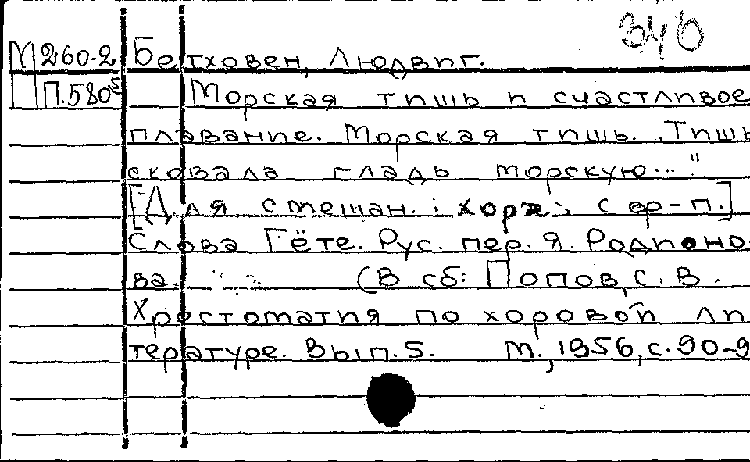 346
М260-2 Бетховен, Людвиг.
П.580 Морская тишь и счастливое
плавание. Морская тишь. „Тишь
сковала гладь морскую..."
[Для смешан. хора с ф-п.]
Слова Гёте. Рус. пер. Я. Родионо-
ва. (В сб: Попов, С. В.
Хрестоматия по хоровой ли
тературе. Вып. 5. М., 1956, с. 90-9